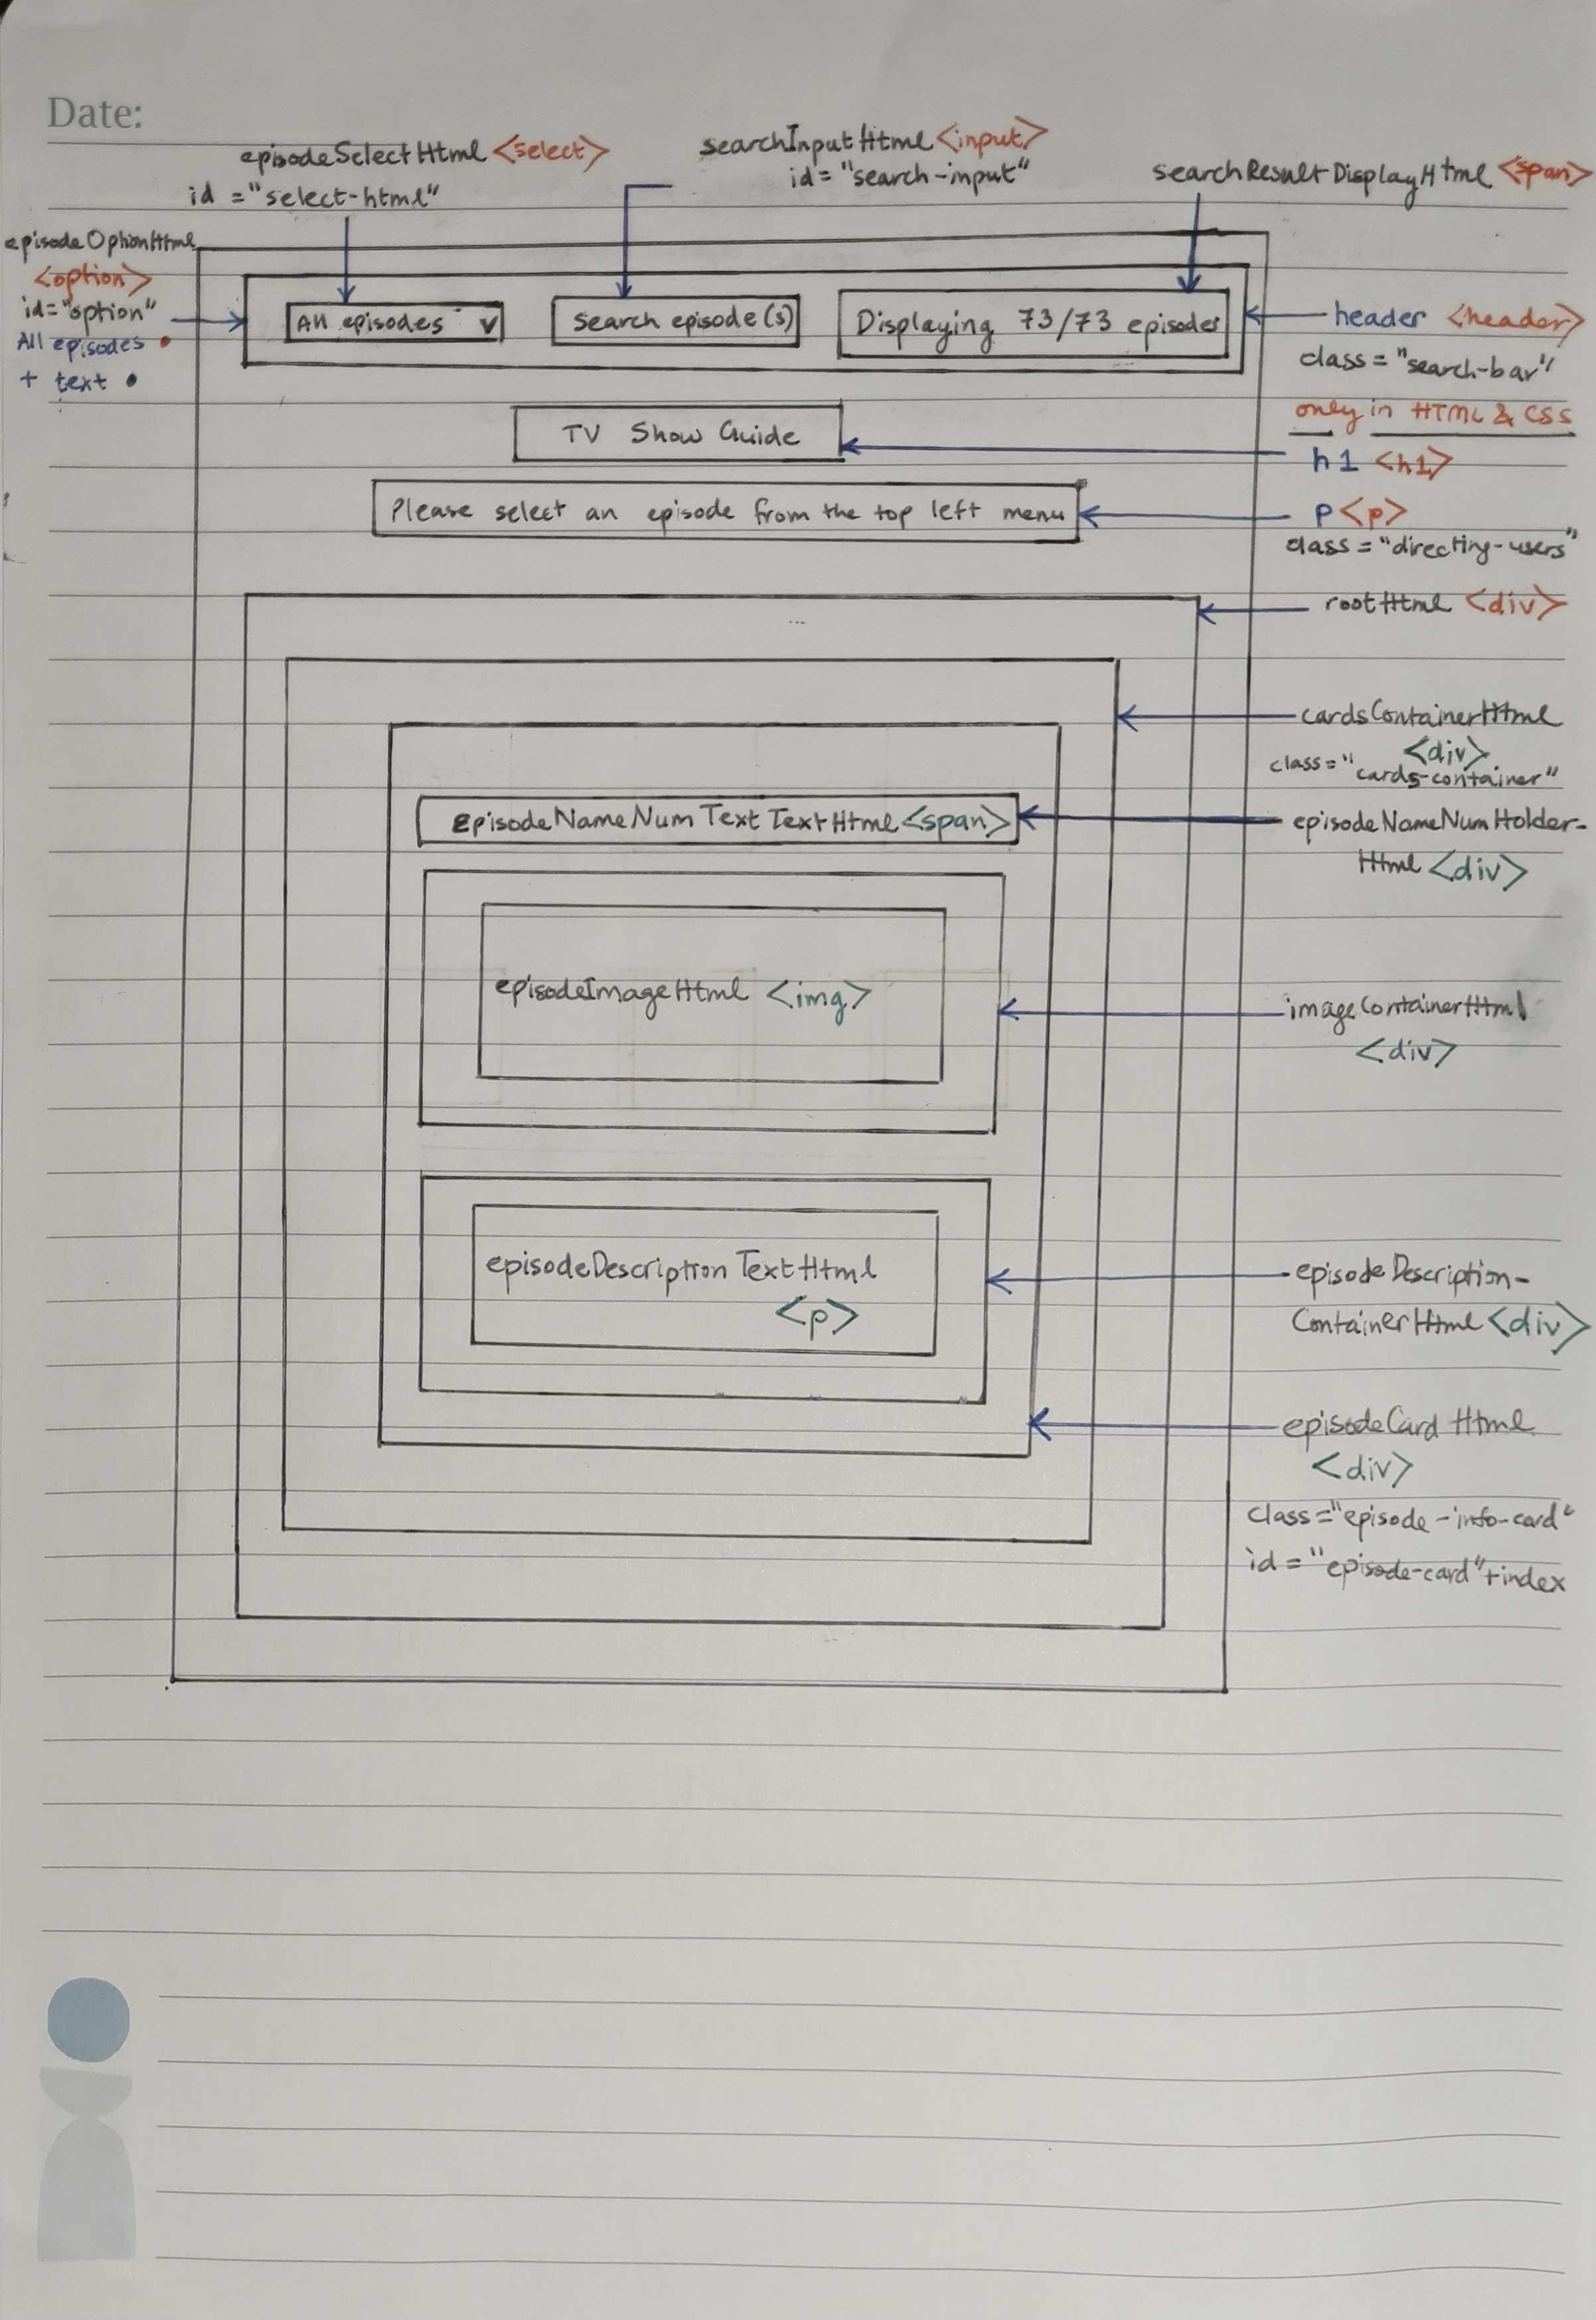 Date:
episodeSelectHtml <select>
id ="select-html"
searchInputHtml <input>
id= "search-input"
searchResultDisplayHtml <span>
episodeOptionHtml
<option>
id="option"
All episodes •
+ text •
All episodes v
Search episode(s)
Displaying 73/73 episodes
header <header>
class= "search-bar"
only in HTML & CSS
TV Show Guide
h1 <h1>
Please select an episode from the top left menu
p <p>
class = "directing-users"
rootHtml <div>
cardsContainerHtml
<div>
class="cards-container"
EpisodeNameNumTextTextHtml <span>
episodeNameNumHolder-
Html <div>
episodeImageHtml <img>
imageContainerHtml
<div>
episodeDescriptionTextHtml
<p>
episodeDescription-
ContainerHtml <div>
episodeCardHtml
<div>
class="episode-info-card"
id = "episode-card"+index